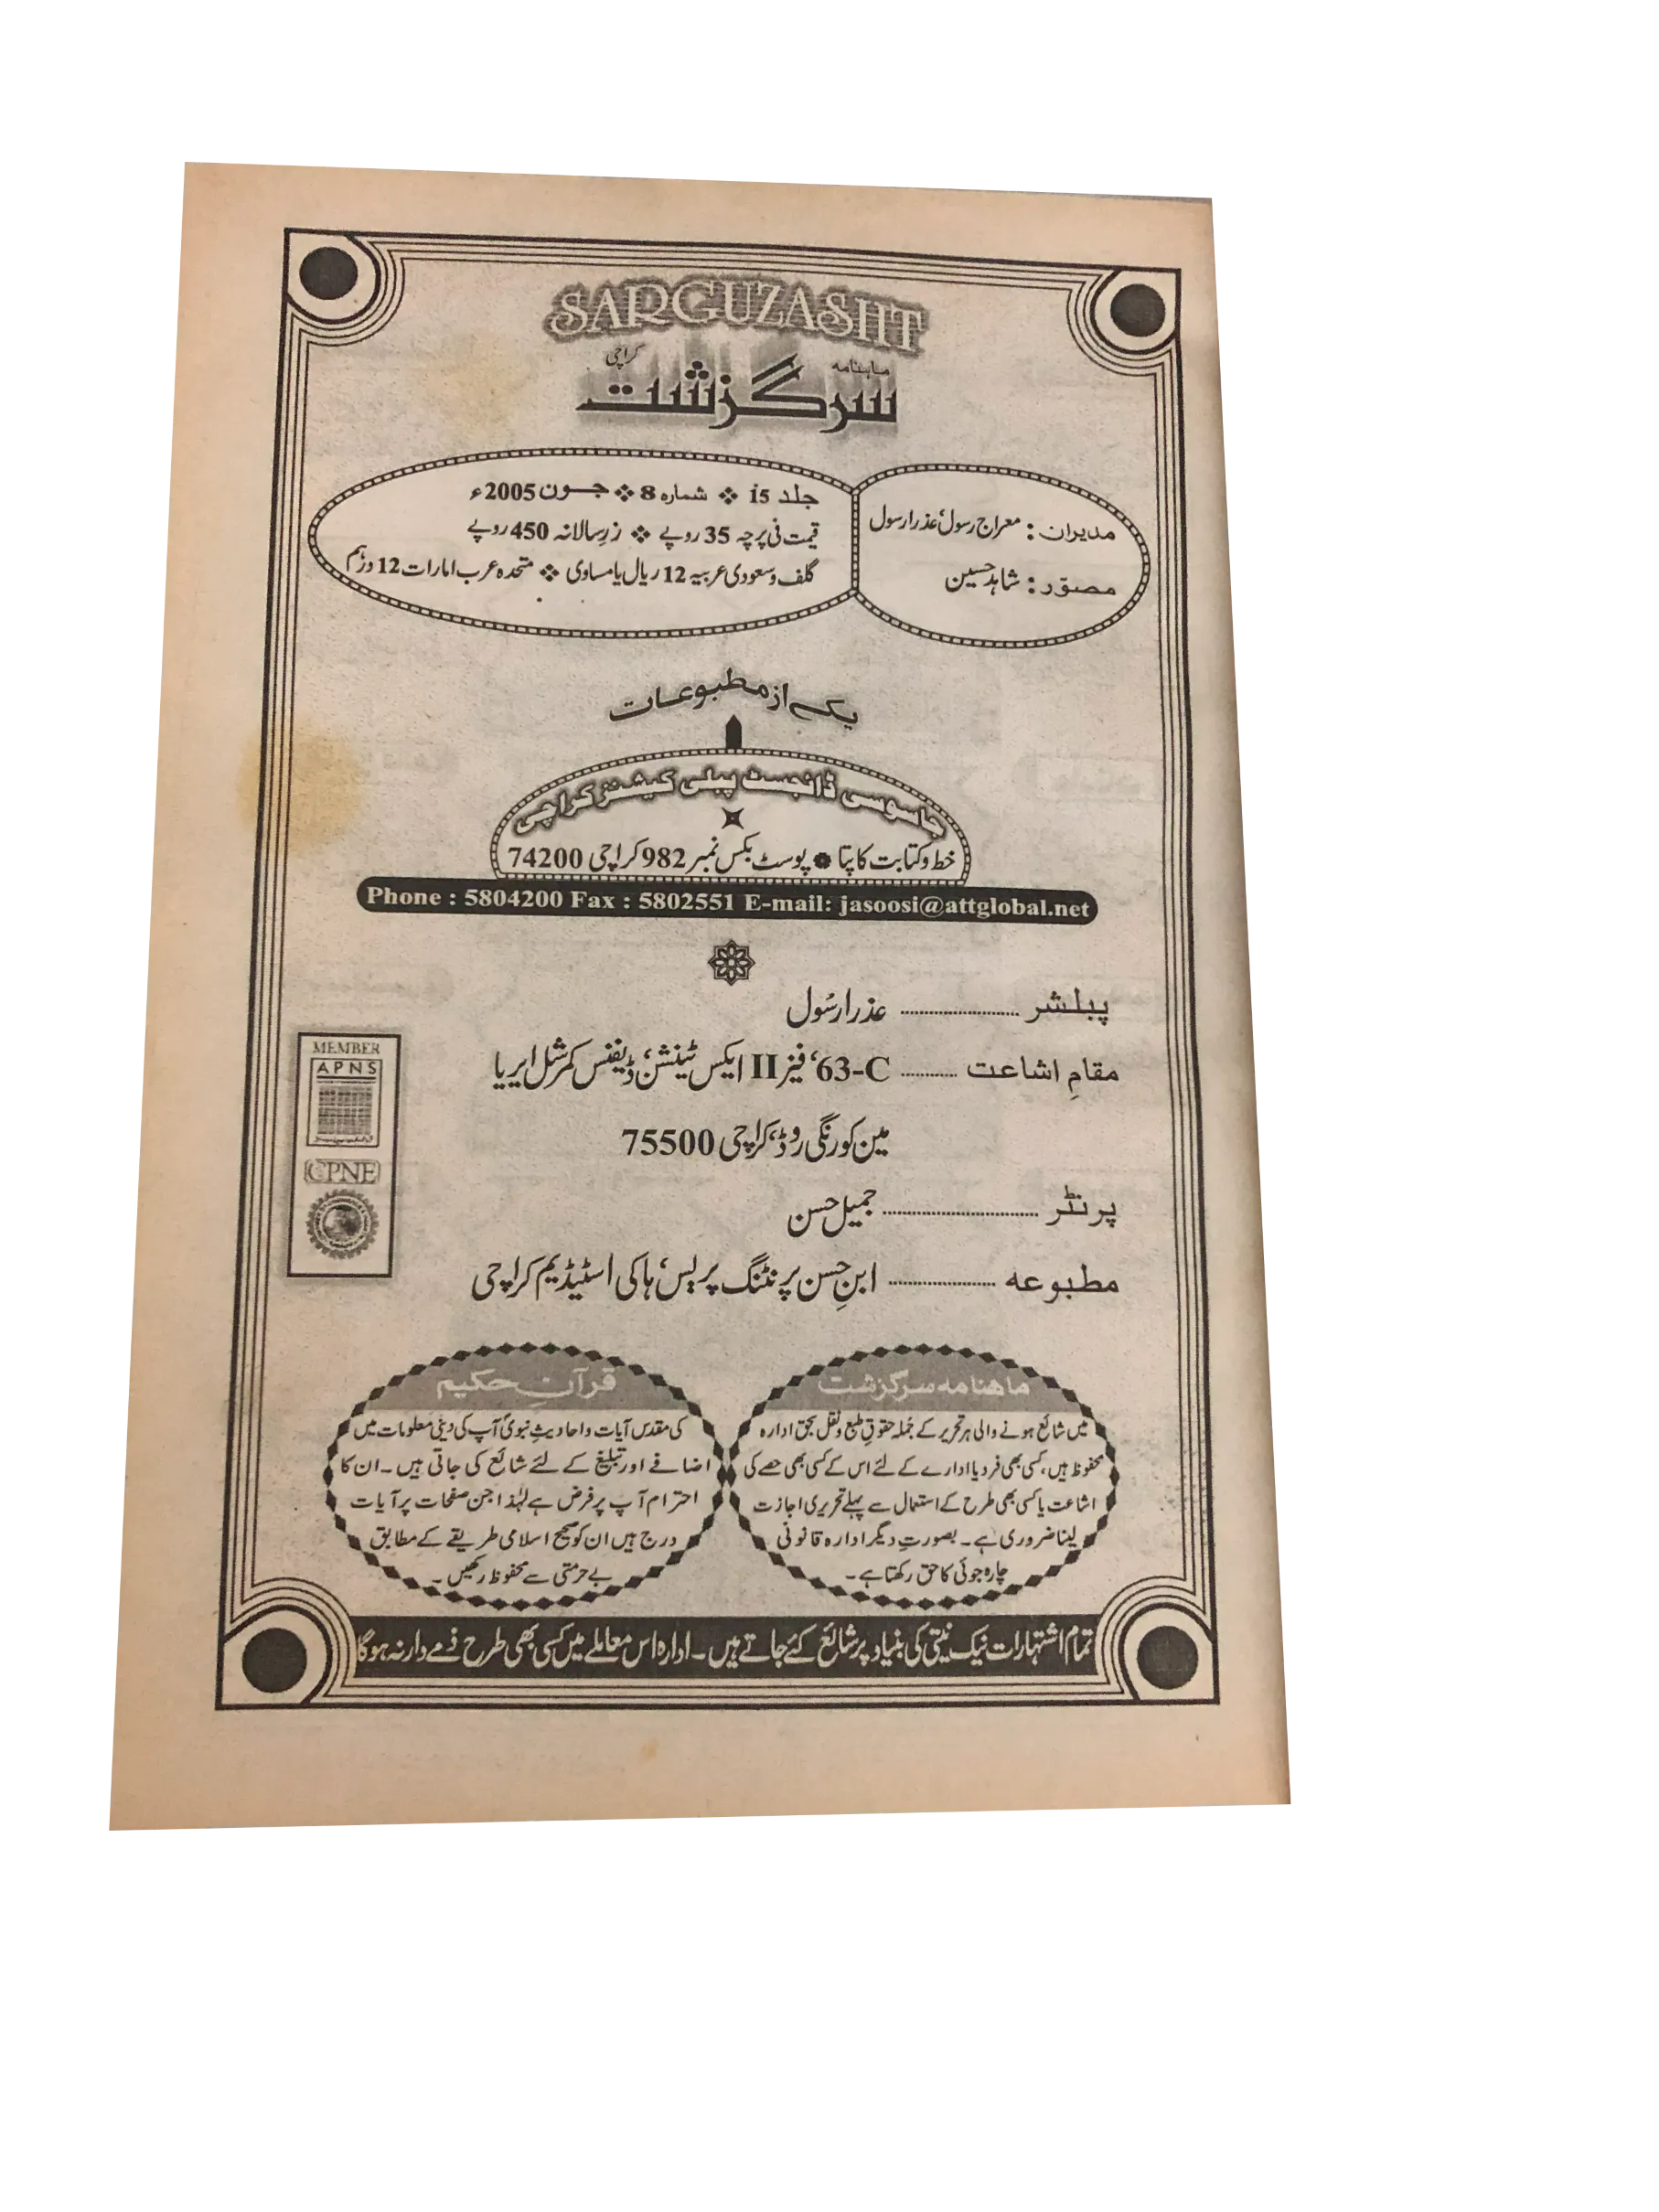 SARGUZASHT
ماہنامہ سرگزشت کراچی
مدیران : معراج رسول، عذرا رسول
مصوّر : شاہد حسین
جلد i5 ❖ شمارہ 8 ❖ جون 2005ء
قیمت فی پرچہ 35 روپے ❖ زرِ سالانہ 450 روپے
گلف و سعودی عربیہ 12 ریال یا مساوی ❖ متحدہ عرب امارات 12 درہم
یکے از مطبوعات
جاسوسی ڈائجسٹ پبلی کیشنز کراچی
خط و کتابت کا پتا ● پوسٹ بکس نمبر 982 کراچی 74200
Phone : 5804200 Fax : 5802551 E-mail: jasoosi@attglobal.net
پبلشر .................... عذرا رسُول
مقامِ اشاعت .......... 63-C، فیز II ایکس ٹینشن، ڈیفنس کمرشل ایریا
مین کورنگی روڈ، کراچی 75500
پرنٹر .......................... جمیل حسن
مطبوعہ .................. ابنِ حسن پرنٹنگ پریس، ہاکی اسٹیڈیم کراچی
MEMBER
APNS
CPNE
ماھنامہ سرگزشت
میں شائع ہونے والی ہر تحریر کے جُملہ حقوقِ طبع و نقل بحق ادارہ
محفوظ ہیں، کسی بھی فرد یا ادارے کے لئے اس کے کسی بھی حصے کی
اشاعت یا کسی بھی طرح کے استعمال سے پہلے تحریری اجازت
لینا ضروری ہے۔ بصورتِ دیگر ادارہ قانونی
چارہ جوئی کا حق رکھتا ہے۔
قرآنِ حکیم
کی مقدس آیات و احادیثِ نبویؐ آپ کی دینی معلومات میں
اضافے اور تبلیغ کے لئے شائع کی جاتی ہیں۔ ان کا
احترام آپ پر فرض ہے لہٰذا جن صفحات پر آیات
درج ہیں ان کو صحیح اسلامی طریقے کے مطابق
بے حرمتی سے محفوظ رکھیں۔
تمام اشتہارات نیک نیتی کی بنیاد پر شائع کئے جاتے ہیں۔ ادارہ اس معاملے میں کسی بھی طرح ذمے دار نہ ہوگا